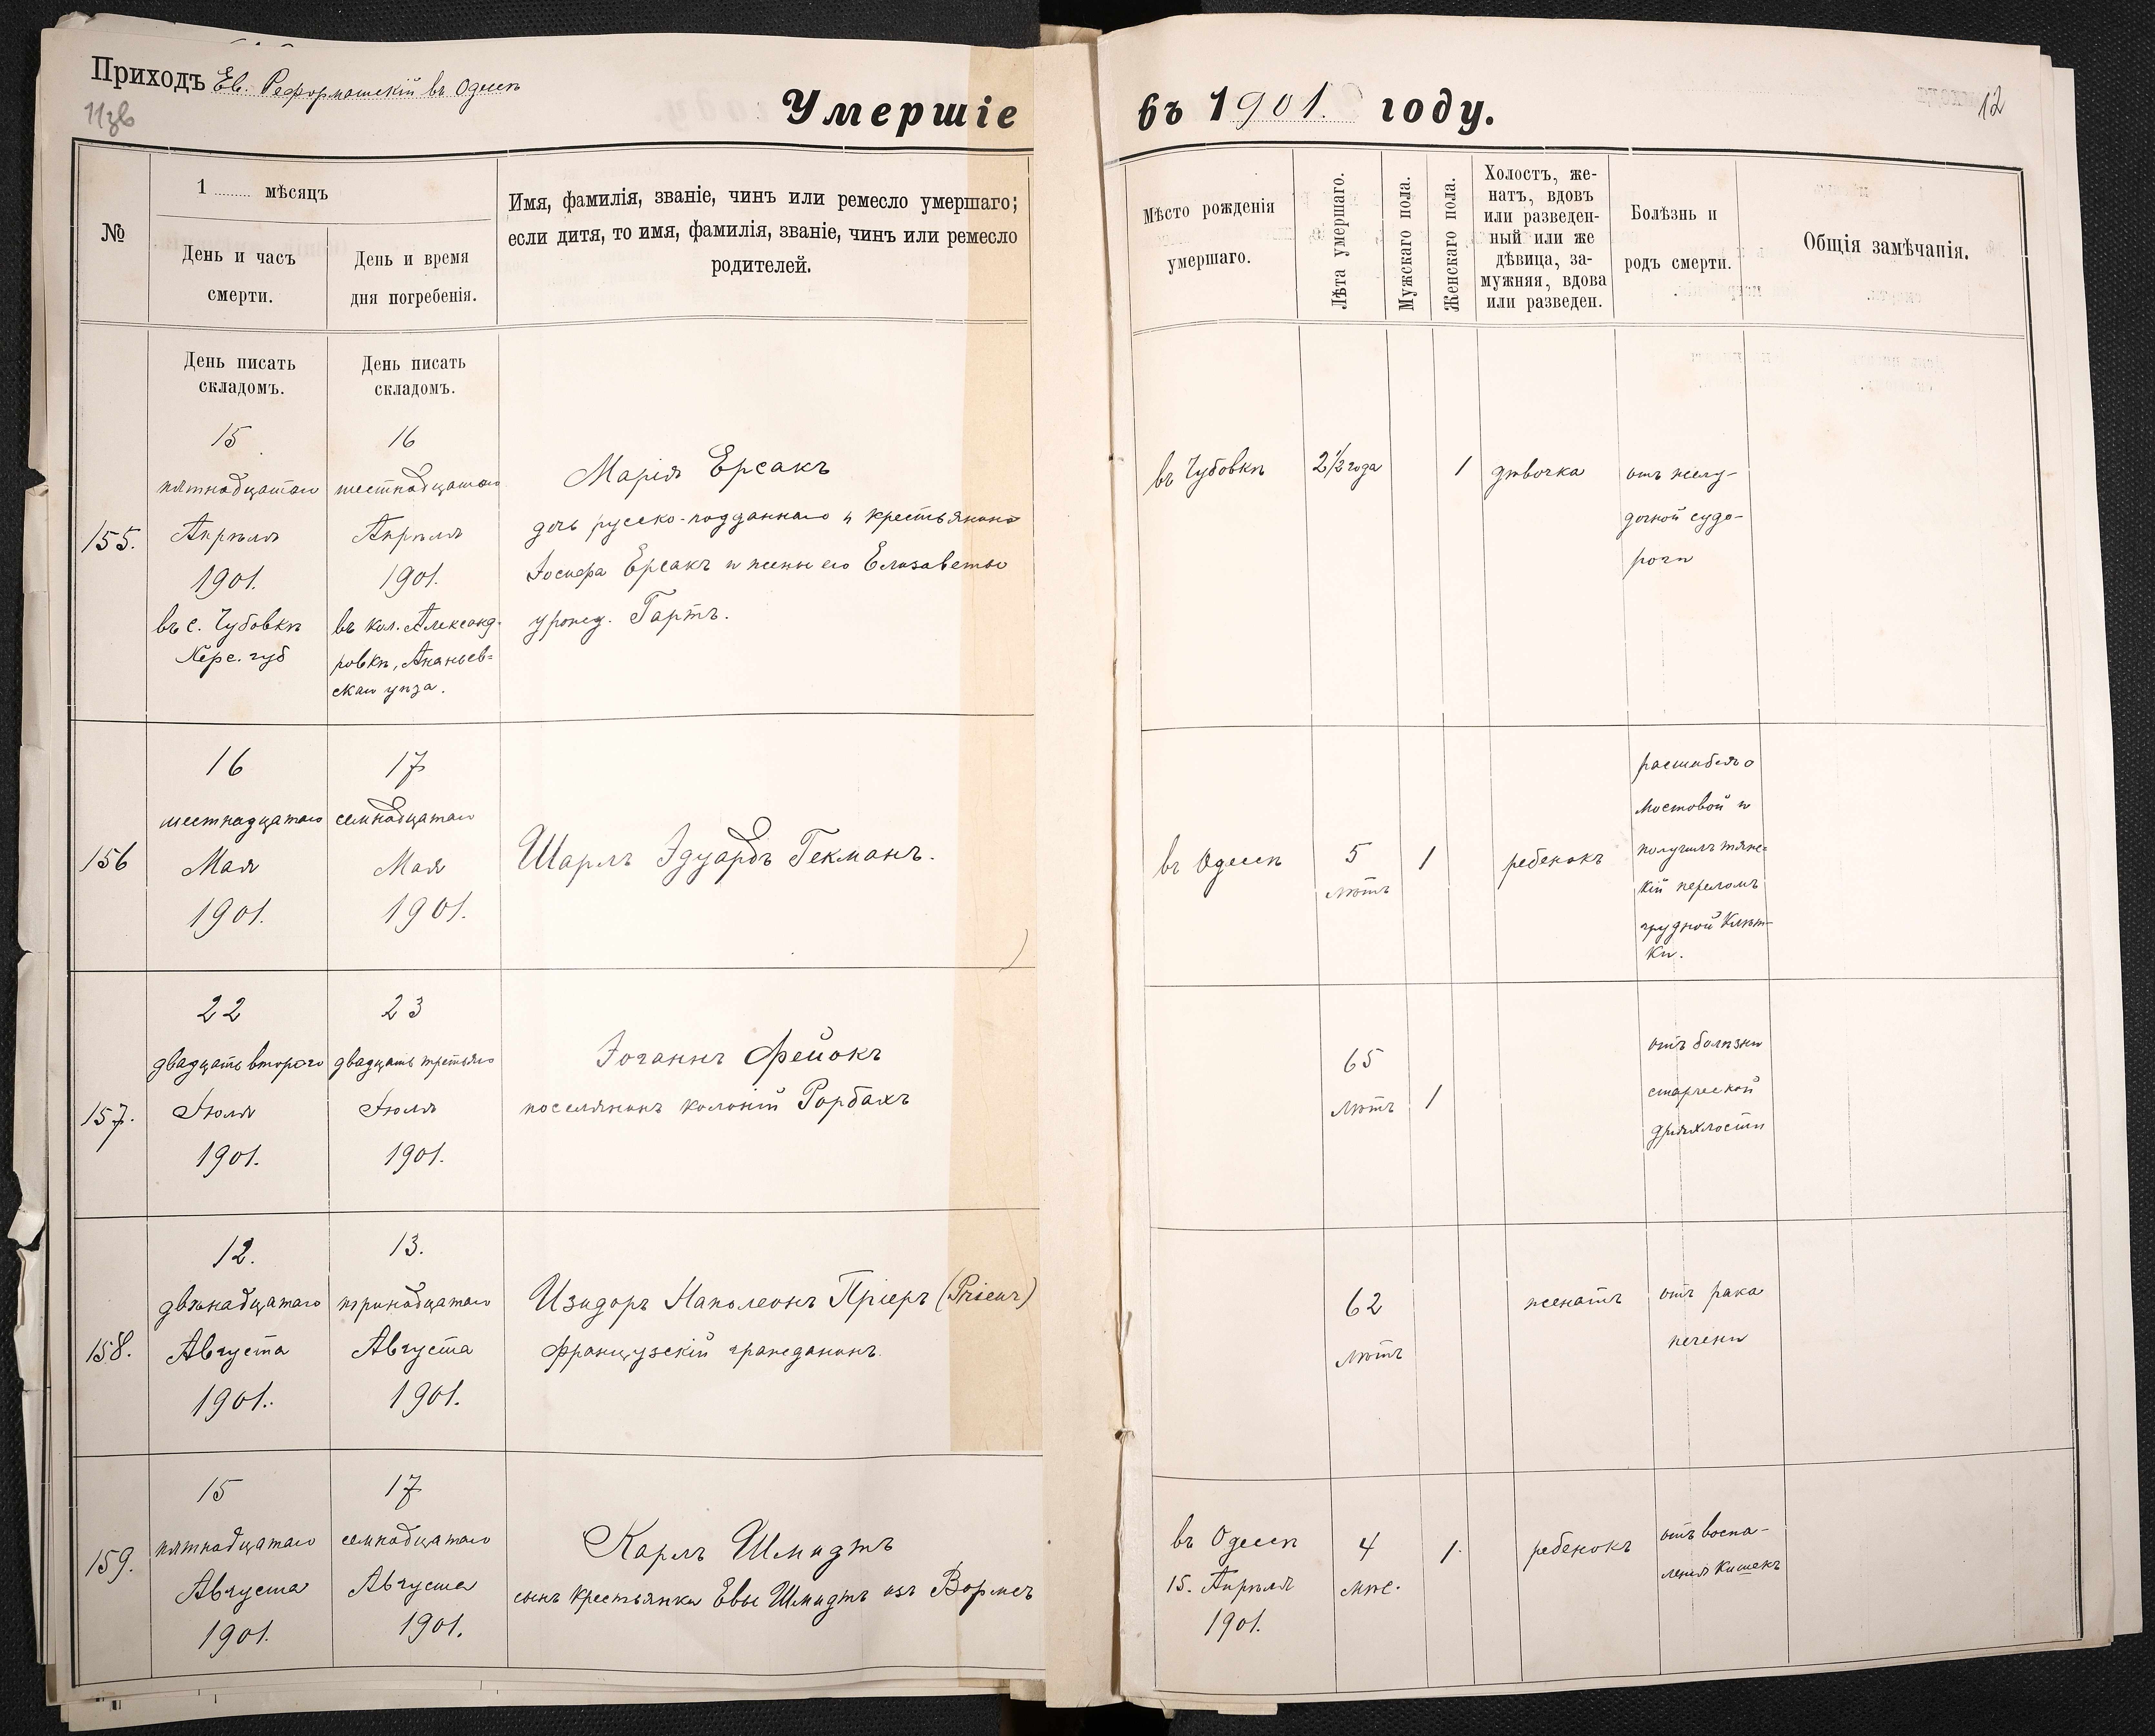 Приходъ Ев. Реформатскій въ Одессѣ
11зв
Умершіе
въ 1901. году.
12
№
1 ........ мѣсяцъ
День и часъ
смерти.
День и время
дня погребенія.
Имя, фамилія, званіе, чинъ или ремесло умершаго;
если дитя, то имя, фамилія, званіе, чинъ или ремесло
родителей.
Мѣсто рожденія
умершаго.
Лѣта умершаго.
Мужскаго пола.
Женскаго пола.
Холостъ, же-
натъ, вдовъ
или разведен-
ный или же
дѣвица, за-
мужняя, вдова
или разведен.
Болѣзнь и
родъ смерти.
Общія замѣчанія.
День писать
складомъ.
День писать
складомъ.
155.
15
пятнадцатаго
Апрѣля
1901.
въ с. Чубовкѣ
Херс. губ
16
шестнадцатаго
Апрѣля
1901.
въ кол. Александ-
ровкѣ, Ананьев-
скаго уѣзда.
Марія Ерсакъ
дочь русско-подданнаго и крестьянина
Іосифа Ерсакъ и жены его Елизаветы
урожд. Гартъ.
въ Чубовкѣ
2½ года
1
дѣвочка
отъ желу-
дочной судо-
роги
156
16
шестнадцатаго
Мая
1901.
17
семнадцатаго
Мая
1901.
Шарлъ Эдуардъ Гекманъ.
въ Одессѣ
5
лѣтъ
1
ребенокъ
расшибся о
мостовой и
получилъ тяж-
кій переломъ
грудной клѣт-
ки.
157.
22
двадцать второго
Іюля
1901.
23
двадцать третьяго
Іюля
1901.
Іоганнъ Фейокъ
поселянинъ колоніи Рорбахъ
65
лѣтъ
1
отъ болѣзни
старческой
дряхлости
158.
12.
двѣнадцатаго
Августа
1901.
13.
тринадцатаго
Августа
1901.
Изидоръ Наполеонъ Пріеръ (Prieur)
французскій гражданинъ.
62
лѣтъ
женатъ
отъ рака
печени
159.
15
пятнадцатаго
Августа
1901.
17
семнадцатаго
Августа
1901.
Карлъ Шмидтъ
сынъ крестьянки Евы Шмидтъ изъ Вормсъ
въ Одессѣ
15. Апрѣля
1901.
4
мѣс.
1.
ребенокъ
отъ воспа-
ленія кишекъ